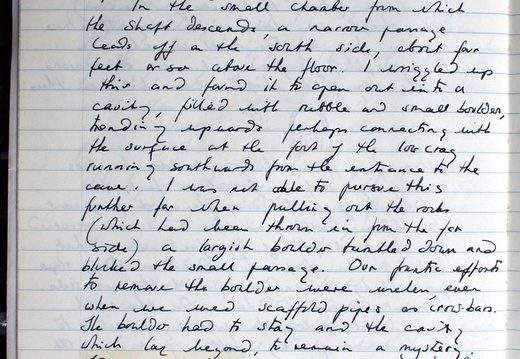 In the small chamber from which
the shaft descends, a narrow passage
leads off on the south side, about four
feet or so above the floor. I wriggled up
this and found it to open out into a
cavity, filled with rubble and small boulders,
trending upwards perhaps connecting with
the surface at the foot of the low crag
running southwards from the entrance to the
cave. I was not able to pursue this
further for when pulling out the rocks
(which had been thrown in from the far
side) a largish boulder tumbled down and
blocked the small passage. Our frantic efforts
to remove the boulder were useless even
when we used scaffold pipes as crow-bars.
The boulder had to stay and the cavity
which lay beyond, to remain a mystery.